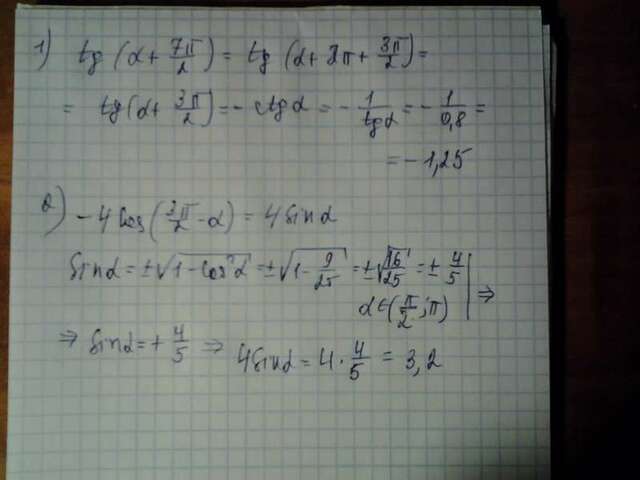 1) tg (α + 7π/2) = tg (α + 2π + 3π/2) =
= tg(α + 3π/2) = - ctgα = - 1/tgα = - 1/0,8 =
= - 1,25
2) - 4 cos (3π/2 - α) = 4 sinα
sinα = ±√1 - cos²α = ±√1 - 9/25 = ±√16/25 = ± 4/5
α ∈ (π/2 ; π) ⇒
⇒ sinα = + 4/5 ⇒ 4 sinα = 4 · 4/5 = 3,2